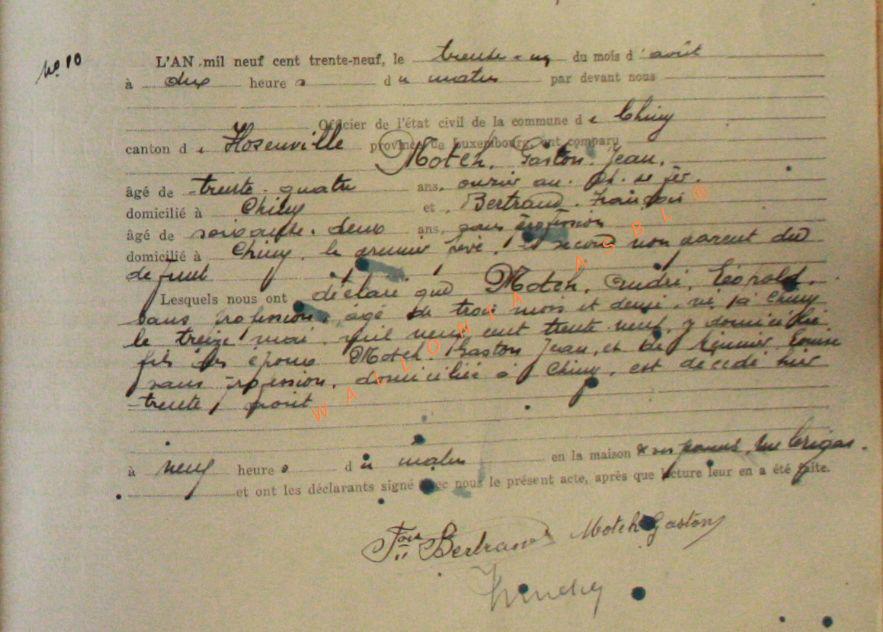 No 10
L'AN mil neuf cent trente-neuf, le trente-un du mois d' août
à dix heure s du matin par devant nous
Officier de l'état civil de la commune de Chiny
canton d province de Luxembourg, ont comparu Motch, Gaston Jean,
âgé de trente-quatre ans, ouvrier au ch. de fer
domicilié à Chiny et Bertrand, François
âgé de soixante-deux ans, sans profession
domicilié à Chiny, le premier père, le second non parent du
defunt
Lesquels nous ont déclaré que Motch, André, Léopold,
sans profession, agé de trois mois et demi, né à Chiny
le treize mai, mil neuf cent trente neuf, y domicilié
fils des époux Motch, Gaston Jean, et de Louise
sans profession, domiciliée à Chiny, est décédé hier
trente août
à neuf heure s du matin en la maison de ses parents, rue
et ont les déclarants signé avec nous le présent acte, après que lecture leur en a été faite.
Fois Bertrand Motch Gaston
WALLONIA ASBL ©